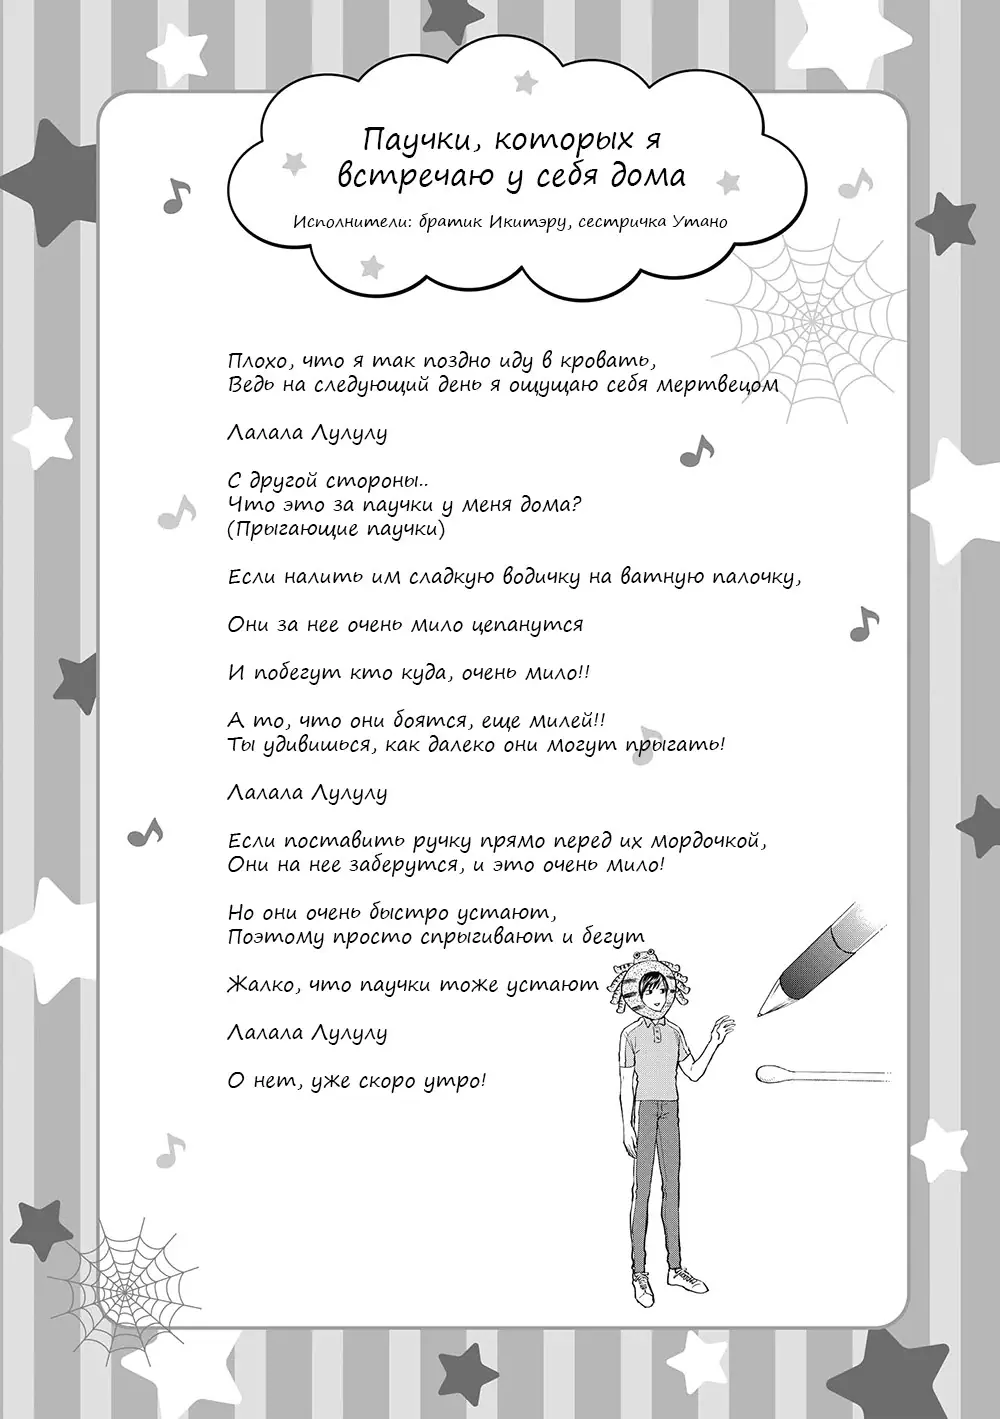 Паучки, которых я
встречаю у себя дома
Исполнители: братик Икитэру, сестричка Утано
Плохо, что я так поздно иду в кровать,
Ведь на следующий день я ощущаю себя мертвецом
Лалала Лулулу
С другой стороны..
Что это за паучки у меня дома?
(Прыгающие паучки)
Если налить им сладкую водичку на ватную палочку,
Они за нее очень мило цепанутся
И побегут кто куда, очень мило!!
А то, что они боятся, еще милей!!
Ты удивишься, как далеко они могут прыгать!
Лалала Лулулу
Если поставить ручку прямо перед их мордочкой,
Они на нее заберутся, и это очень мило!
Но они очень быстро устают,
Поэтому просто спрыгивают и бегут
Жалко, что паучки тоже устают
Лалала Лулулу
О нет, уже скоро утро!